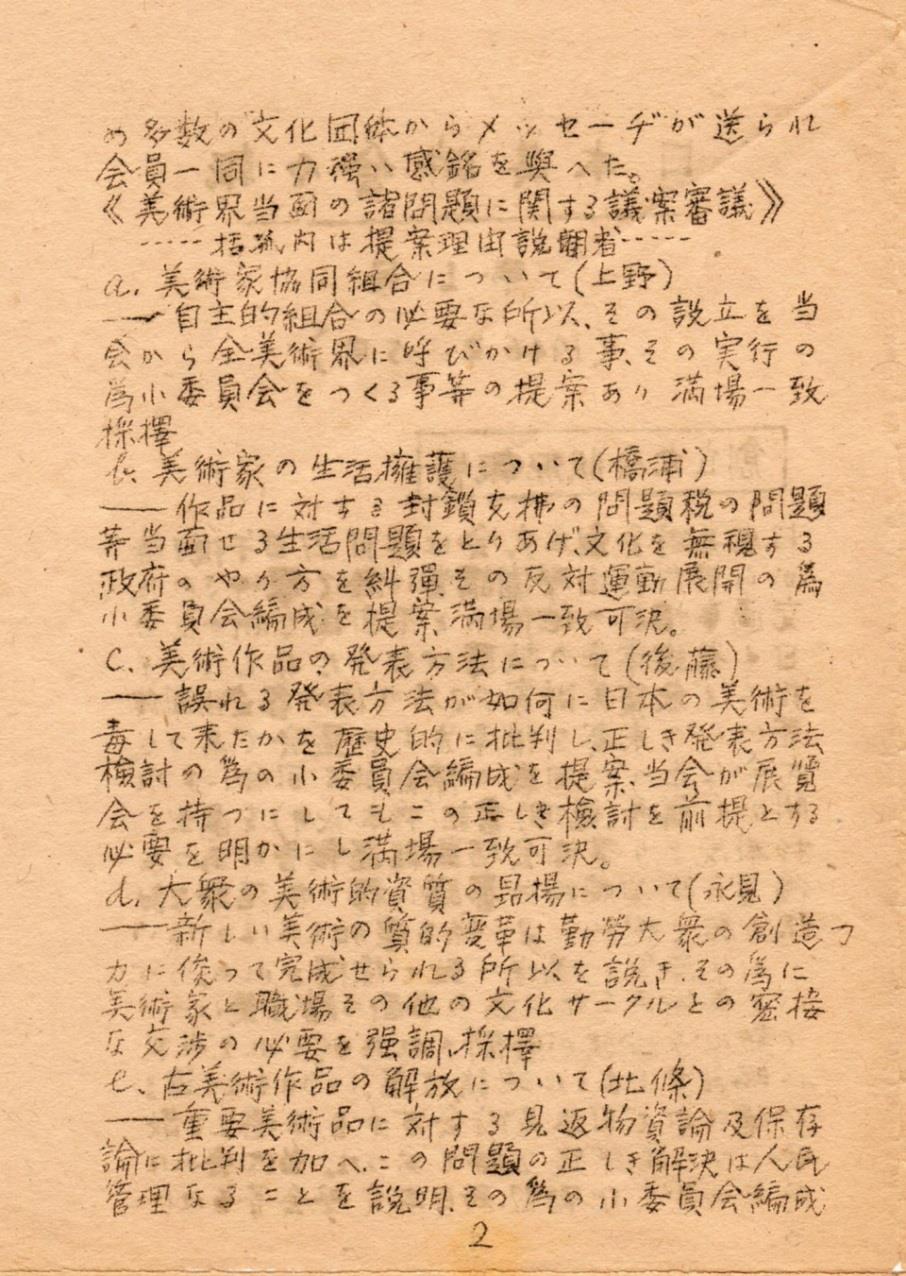 め多数の文化団体からメッセーヂが送られ
会員一同に力強い感銘を與へた。
《美術界当面の諸問題に関する議案審議》
……括弧内は提案理由説明者……
a. 美術家協同組合について(上野)
——自主的組合の必要な所以、その設立を当
会から全美術界に呼びかける事、その実行の
為小委員会をつくる事等の提案あり満場一致
採擇
b. 美術家の生活擁護について(橋浦)
——作品に対する封鎖支拂の問題税の問題
等当面せる生活問題をとりあげ、文化を無視する
政府のやり方を糾彈、その反対運動展開の為
小委員会編成を提案、満場一致可決。
C. 美術作品の発表方法について(後藤)
——誤れる発表方法が如何に日本の美術を
毒して来たかを歴史的に批判し、正しき発表方法
検討の為の小委員会編成を提案、当会が展覽
会を持つにしてもこの正しき検討を前提とする
必要を明かにし満場一致可決。
d. 大衆の美術的資質の昂揚について(永見)
——新しい美術の質的変革は勤勞大衆の創造
力に俟って完成せられる所以を説き、その為に
美術家と職場その他の文化サークルとの密接
な交渉の必要を強調、採擇
e. 古美術作品の解放について(北條)
——重要美術品に対する見返物資論及保存
論に批判を加へ、この問題の正しき解決は人民
管理なることを説明、その為の小委員会編成
2